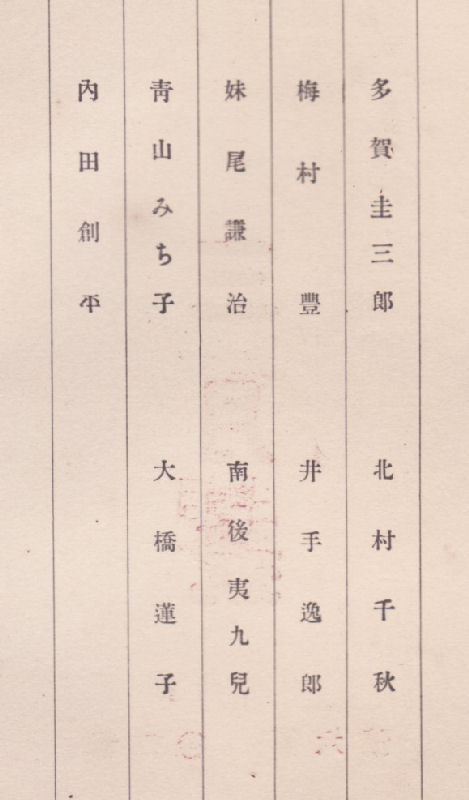 多賀圭三郎
北村千秋
梅村豐
井手逸郎
妹尾謙治
南後夷九兒
靑山みち子
大橋蓮子
內田創平